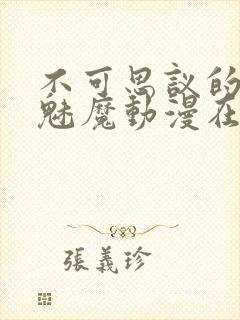 不可思議的
魅魔動漫在
張義珍